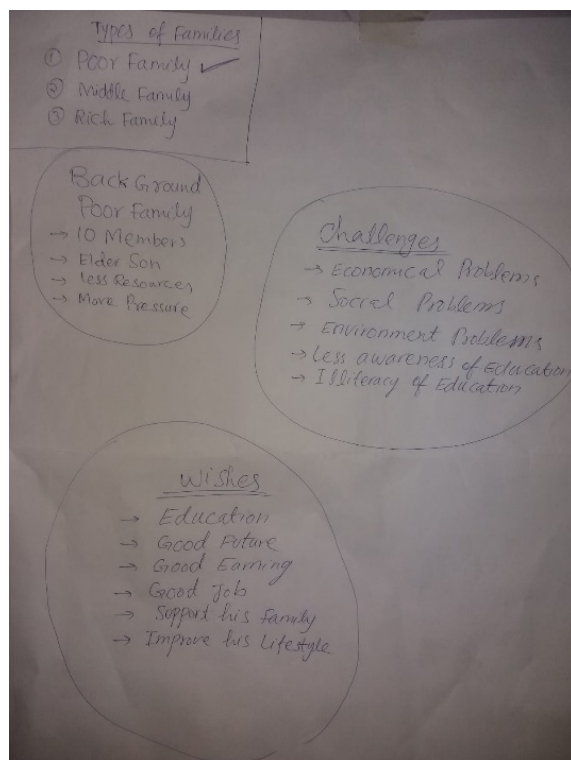 Types of Families
① Poor Family ✓
② Middle Family
③ Rich Family
Back Ground
Poor Family
→ 10 Members
→ Elder Son
→ Less Resources
→ More Pressure
Challenges
→ Economical Problems
→ Social Problems
→ Environment Problems
→ Less awareness of Education
→ Illiteracy of Education
Wishes
→ Education
→ Good Future
→ Good Earning
→ Good Job
→ Support his Family
→ Improve his Lifestyle